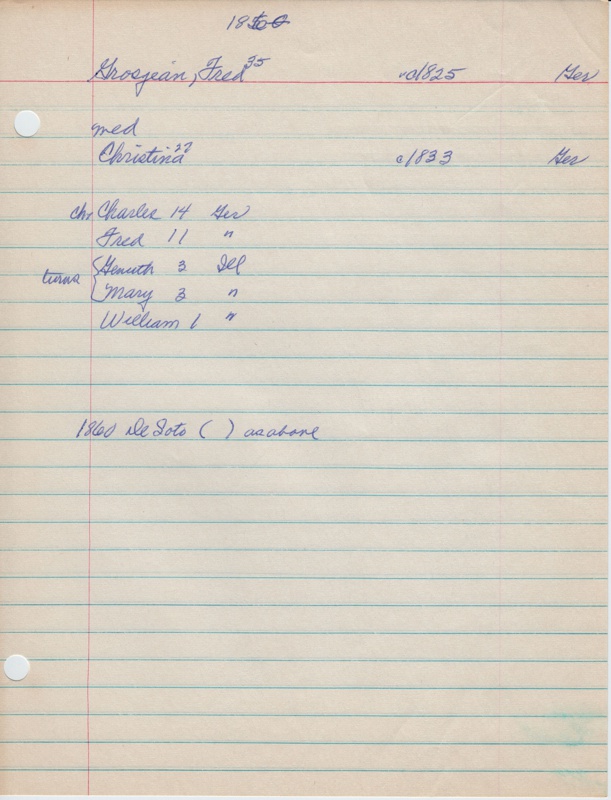 1860
Grosjean, Fred 35 c1825 Ger
med
Christina 27 c1833 Ger
ch. Charles 14 Ger
Fred 11 "
3 Ill
Mary 3 "
William 1 "
1860 De Soto ( ) as above